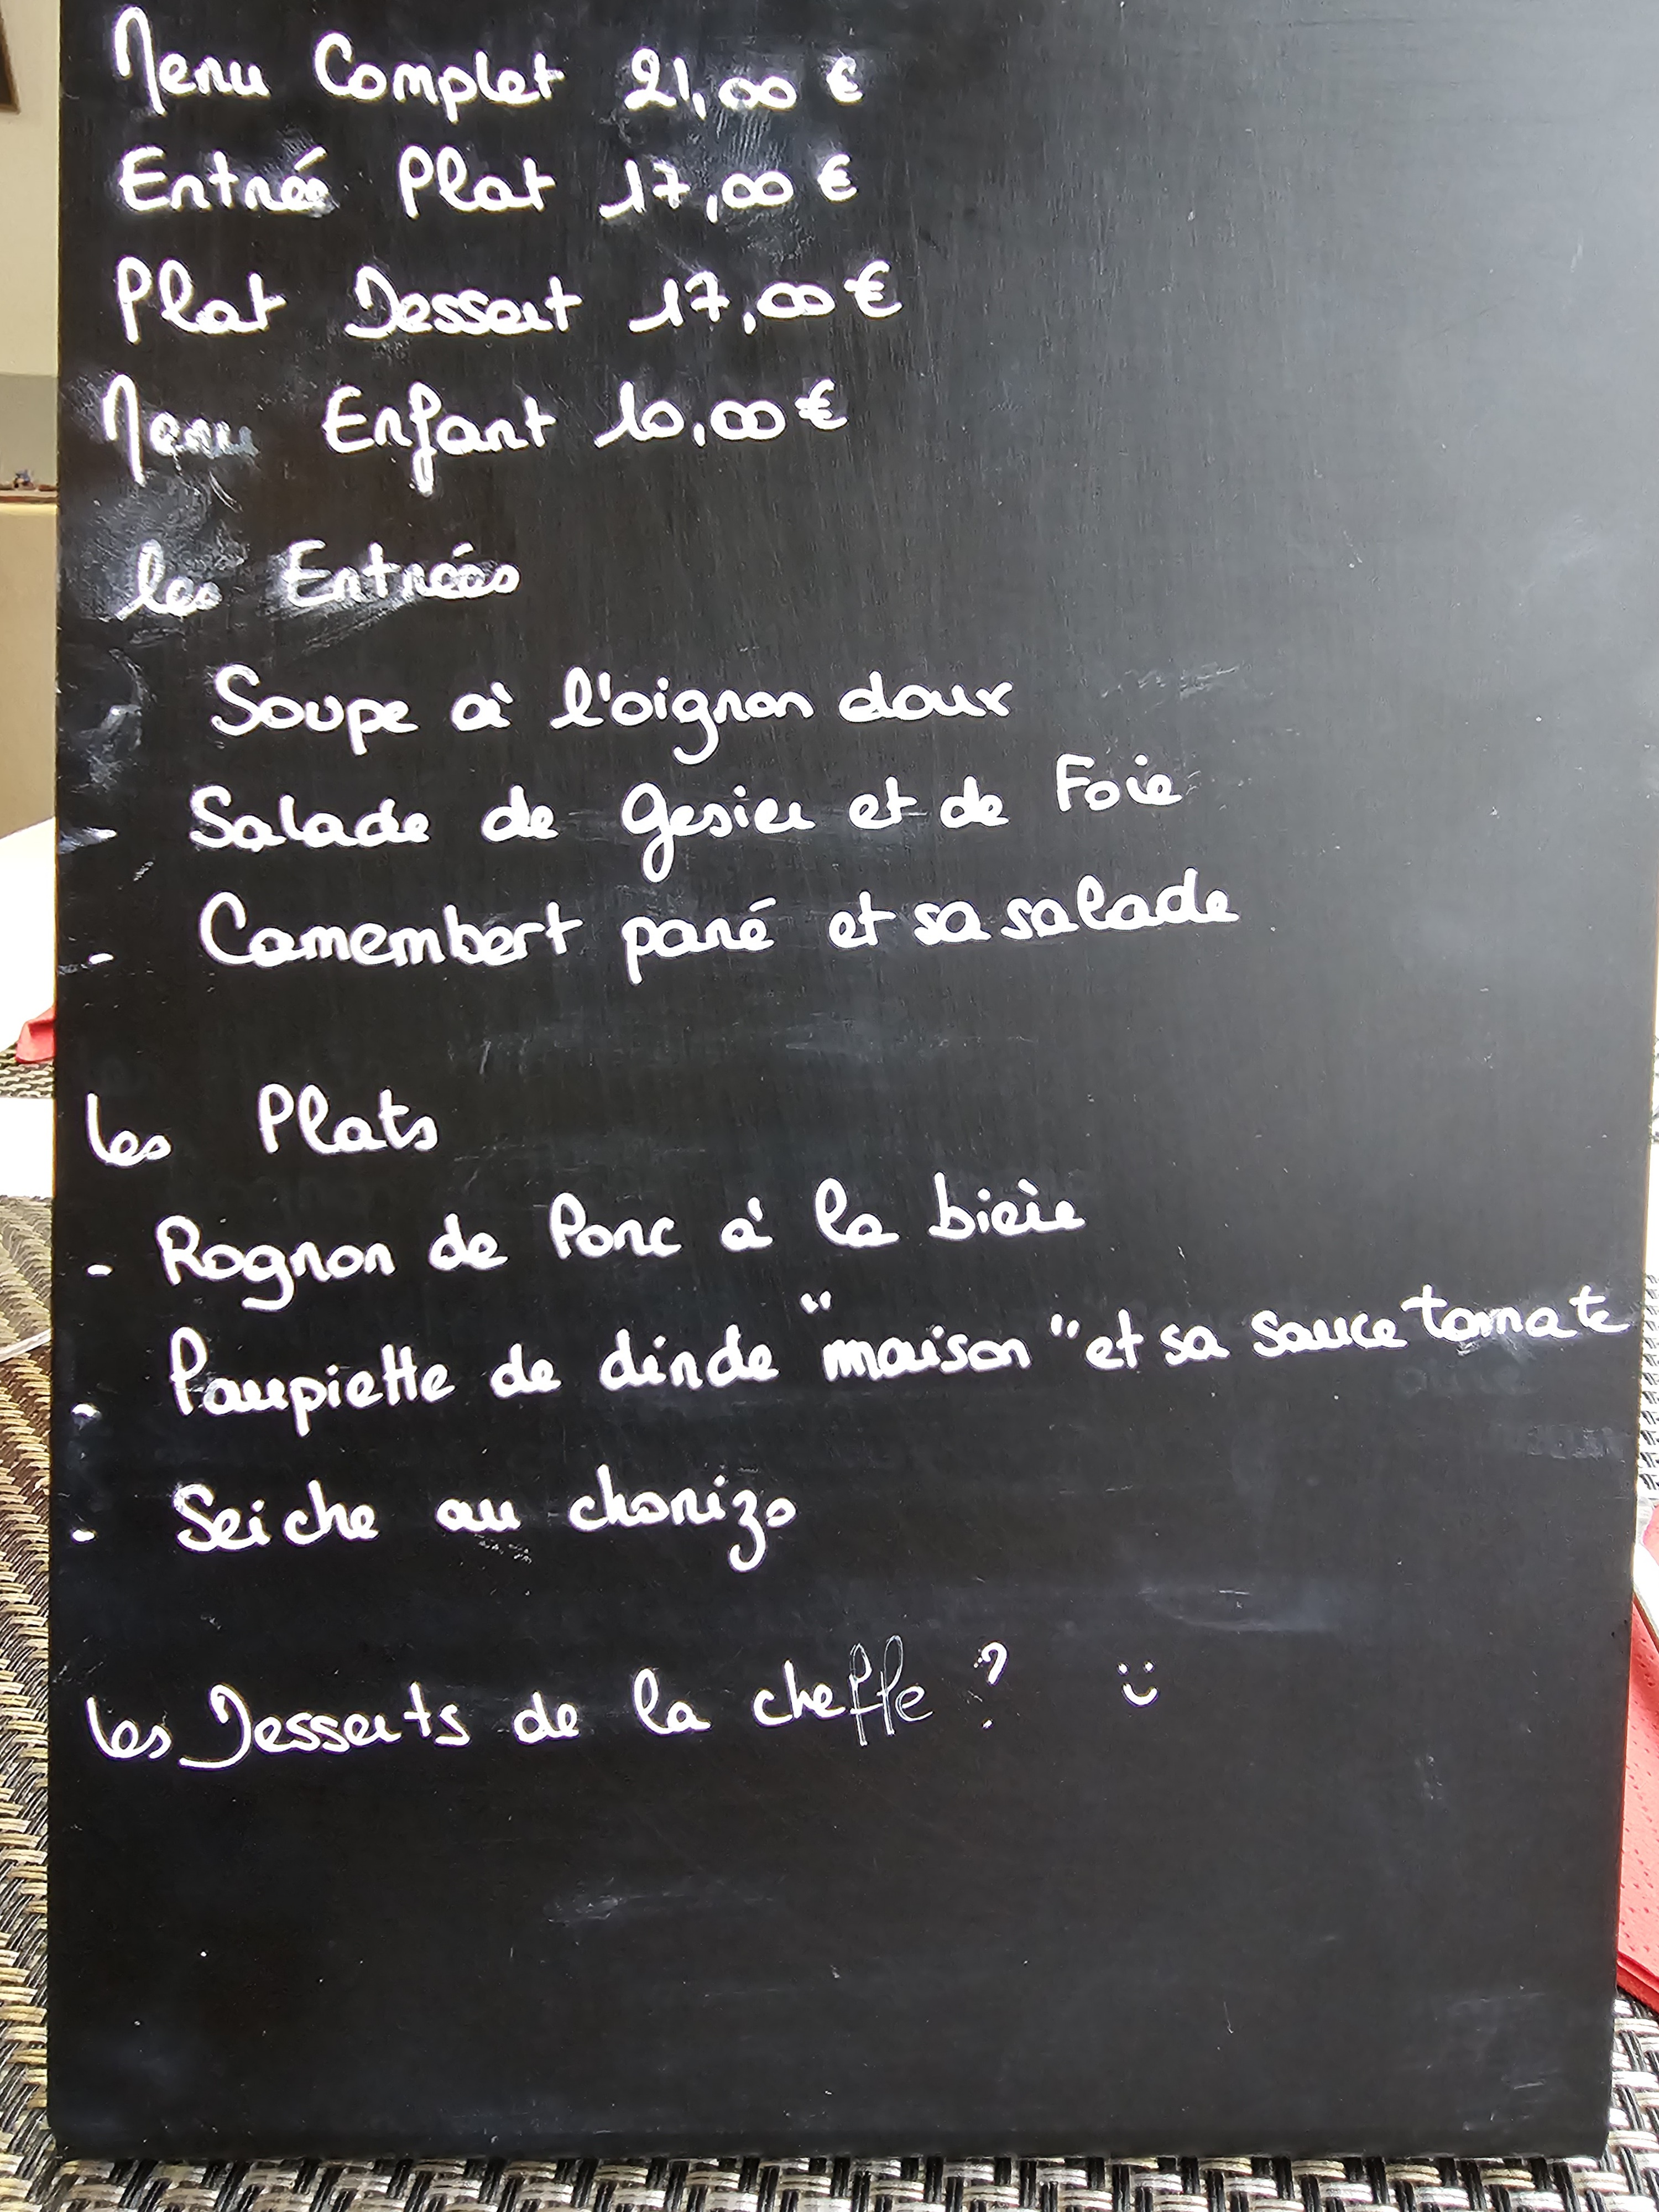 Menu Complet 21,00 €
Entrée Plat 17,00 €
Plat Dessert 17,00 €
Menu Enfant 10,00 €
les Entrées
Soupe à l'oignon doux
- Salade de gesier et de Foie
- Camembert pané et sa salade
Les Plats
- Rognon de Porc à la bière
- Paupiette de dinde "maison" et sa sauce tomate
- Seiche au chorizo
Les Desserts de la cheffe ? :)